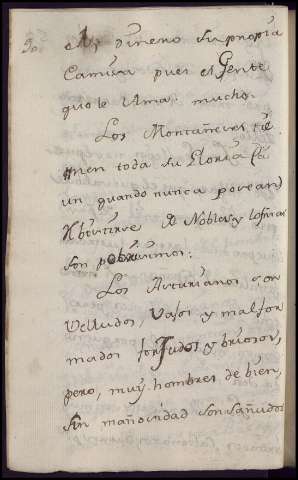 el Dinero su propia
Camisa pues es Gente
que le Ama mucho.
Los Montañeses tie
nen toda su Gloria
un quando nunca posean
de Nobles y los mas
son pobrisimos:
Los Asturianos son
Velludos, vajos y malfor
mados forzudos y briosos,
pero, muy hombres de bien,
sin mañosidad son sañudos